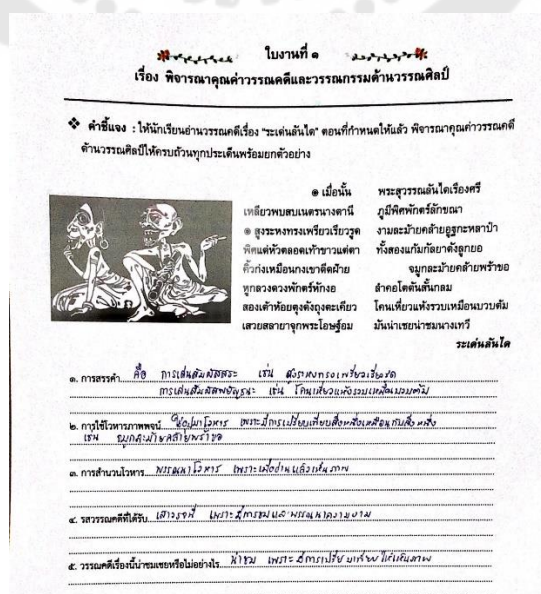 ใบงานที่ ๑
เรื่อง พิจารณาคุณค่าวรรณคดีและวรรณกรรมด้านวรรณศิลป์
❖ คำชี้แจง : ให้นักเรียนอ่านวรรณคดีเรื่อง "ระเด่นลันได" ตอนที่กำหนดให้แล้ว พิจารณาคุณค่าวรรณคดี
ด้านวรรณศิลป์ให้ครบถ้วนทุกประเด็นพร้อมยกตัวอย่าง
๏ เมื่อนั้น พระสุวรรณลันไดเรืองศรี
เหลียวพบสบเนตรนางตานี ภูมีพิศพักตร์ลักขณา
๏ สูงระหงทรงเพรียวเรียวรูด งามละม้ายคล้ายอูฐกะหลาป๋า
พิศแต่หัวตลอดเท้าขาวแต่ตา ทั้งสองแก้มกัลยาดังลูกยอ
คิ้วก่งเหมือนกงเขาดีดฝ้าย จมูกละม้ายคล้ายพร้าขอ
หูกลวงดวงพักตร์หักงอ ลำคอโตตันสั้นกลม
สองเต้าห้อยตุงดังถุงตะเคียว โคนเหี่ยวแห้งรวบเหมือนบวบต้ม
เสวยสลายาจุกพระโอษฐ์อม มันน่าเชยน่าชมนางเทวี
ระเด่นลันได
๑. การสรรคำ คือ การเล่นสัมผัสสระ เช่น สูงระหงทรงเพรียวเรียวรูด
การเล่นสัมผัสพยัญชนะ เช่น โคนเหี่ยวแห้งรวบเหมือนบวบต้ม
๒. การใช้โวหารภาพพจน์ ใช้อุปมาโวหาร เพราะมีการเปรียบเทียบสิ่งหนึ่งเหมือนกับสิ่งหนึ่ง
เช่น จมูกละม้ายคล้ายพร้าขอ
๓. การสำนวนโวหาร พรรณนาโวหาร เพราะเมื่ออ่านแล้วเห็นภาพ
๔. รสวรรณคดีที่ได้รับ เสาวรจนี เพราะมีการชมและพรรณนาความงาม
๕. วรรณคดีเรื่องนี้น่าชมเชยหรือไม่อย่างไร น่าชม เพราะมีการเปรียบเทียบให้เห็นภาพ